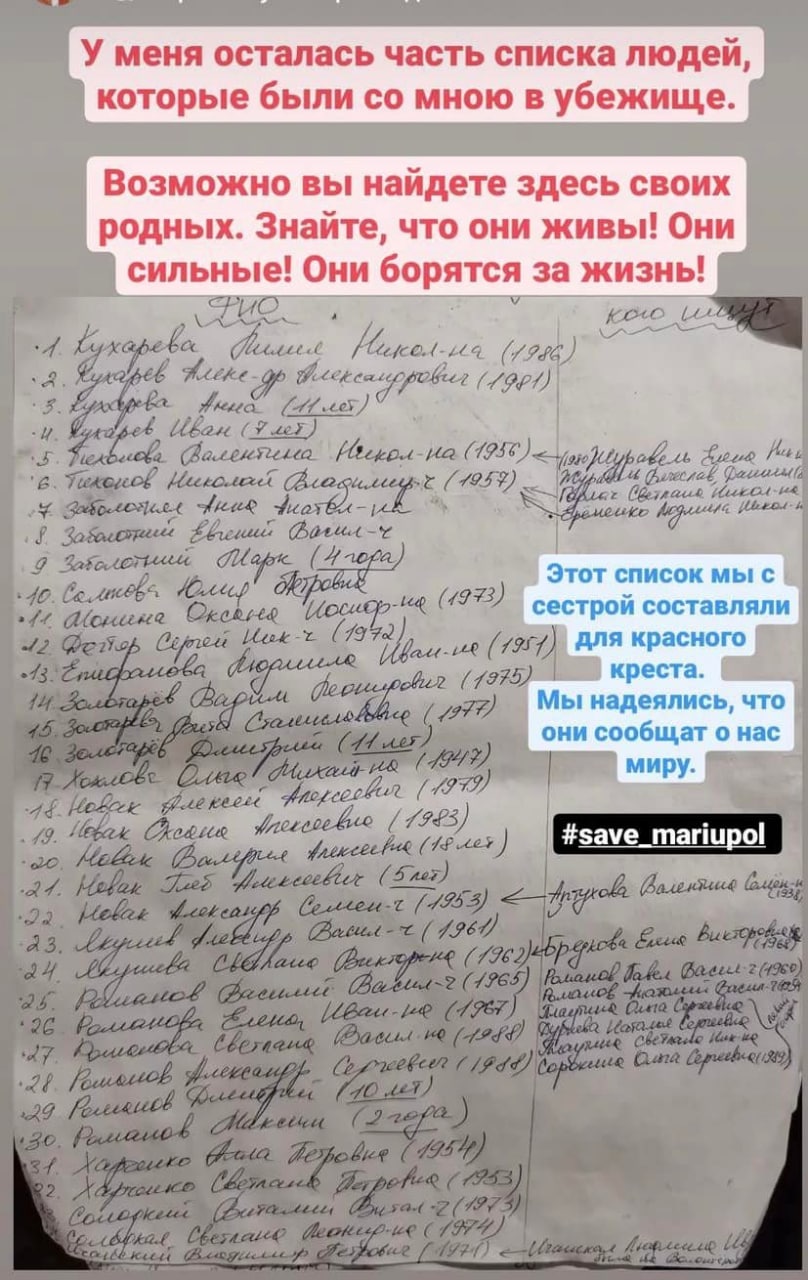 У меня осталась часть списка людей,
которые были со мною в убежище.
Возможно вы найдете здесь своих
родных. Знайте, что они живы! Они
сильные! Они борятся за жизнь!
ФИО
кого ищут
1. Кухарева Лилия Никол-на (1986)
2. Кухарев Алекс-др Александрович (1981)
3. Кухарева Анна (11 лет)
4. Кухарев Иван (7 лет)
5. Тихонова Валентина Никол-на (1956)
Журавель Елена
6. Тихонов Николай Владимир-ч (1957)
Журавель Вячеслав
Светлана Никол-на
7. Заболотная Анна Анатол-на
Еременко Людмила Никол-
8. Заболотний Евгений Васил-ч
9 Заболотний Марк (4 года)
10. Салкова Юлия Петровна
11. Монина Оксана Иосиф-на (1973)
12 Сергей Ник-ч (1972)
13. Епифанова Людмила Иван-на (1951)
14. Золотарёв Вадим Леонидович (1975)
15. Золотарёва Станиславовна (1977)
16 Золотарёв Дмитрий (11 лет)
17 Хохлова Ольга Михайл-на (1947)
18. Новак Алексей Алексеевич (1979)
19. Новак Оксана Алексеевна (1983)
20. Новак Валерия Алексеевна (18 лет)
21. Новак Глеб Алексеевич (5 лет)
22. Новак Александр Семен-ч (1953)
Артухова Валентина Семен-н
23. Якушев Александр Васил-ч (1961)
24 Якушева Светлана Виктор-на (1962)
Бредкова Елена Викторовна
(1968)
25. Романов Василий Васил-ч (1965)
Романов Павел Васил-ч (1960)
Романов Анатолий Васил-ч
26 Романова Елена Иван-на (1967)
Ольга Сергеевна
Наталья Сергеевна
27. Романова Светлана Васил-на (1988)
Светлана Ник-на
28. Романов Александр Сергеевич (1988)
Сорокина Ольга Сергеевна (1989)
29 Романов Дмитрий (10 лет)
30. Романов Максим (2 года)
31. Харченко Алла Петровна (1954)
32. Харченко Светлана Петровна (1953)
Солодкий Виталий Витал-ч (1973)
Солодкая Светлана Леонид-на (1974)
Владимир Петрович (1971)
Людмила
Этот список мы с
сестрой составляли
для красного
креста.
Мы надеялись, что
они сообщат о нас
миру.
#save_mariupol